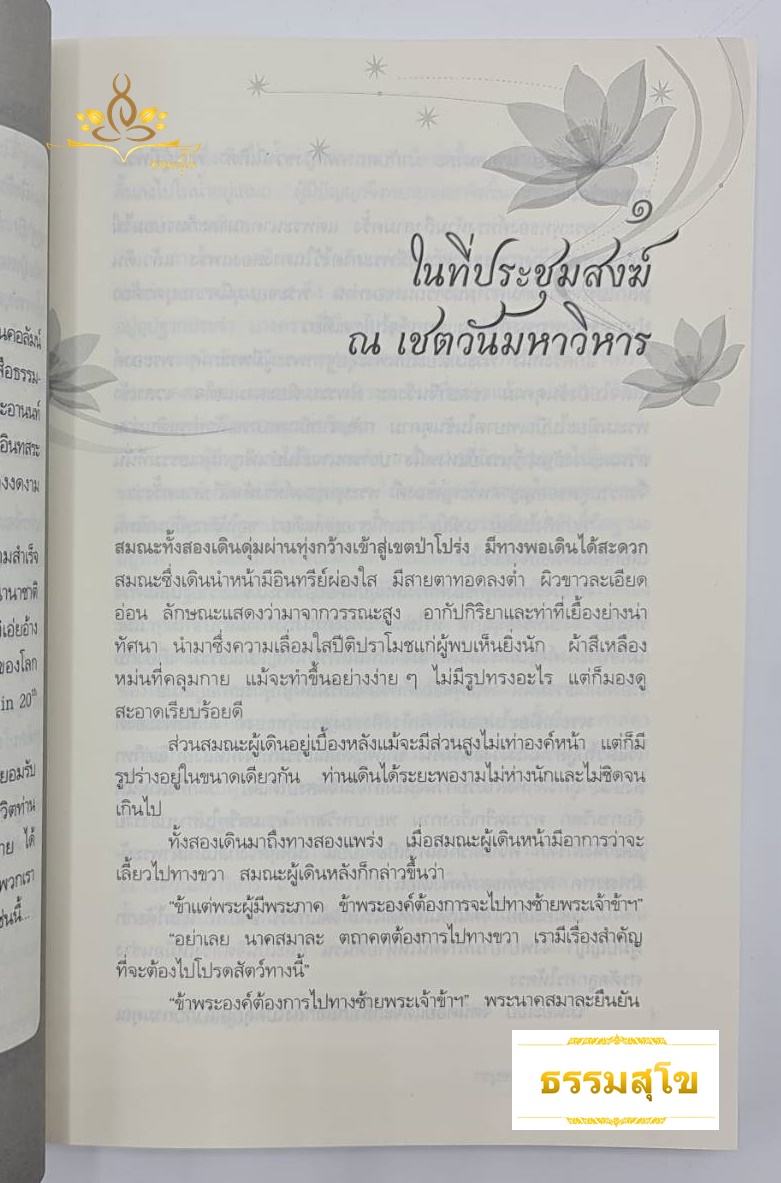 ๑
ในที่ประชุมสงฆ์
ณ เชตวันมหาวิหาร
สมณะทั้งสองเดินดุ่มผ่านทุ่งกว้างเข้าสู่เขตป่าโปร่ง มีทางพอเดินได้สะดวก
สมณะซึ่งเดินนำหน้ามีอินทรีย์ผ่องใส มีสายตาทอดลงต่ำ ผิวขาวละเอียด
อ่อน ลักษณะแสดงว่ามาจากวรรณะสูง อากัปกิริยาและท่าที่เยื้องย่างน่า
ทัศนา นำมาซึ่งความเลื่อมใสปีติปราโมชแก่ผู้พบเห็นยิ่งนัก ผ้าสีเหลือง
หม่นที่คลุมกาย แม้จะทำขึ้นอย่างง่าย ๆ ไม่มีรูปทรงอะไร แต่ก็มองดู
สะอาดเรียบร้อยดี
ส่วนสมณะผู้เดินอยู่เบื้องหลังแม้จะมีส่วนสูงไม่เท่าองค์หน้า แต่ก็มี
รูปร่างอยู่ในขนาดเดียวกัน ท่านเดินได้ระยะพองามไม่ห่างนักและไม่ชิดจน
เกินไป
ทั้งสองเดินมาถึงทางสองแพร่ง เมื่อสมณะผู้เดินหน้ามีอาการว่าจะ
เลี้ยวไปทางขวา สมณะผู้เดินหลังก็กล่าวขึ้นว่า
“ข้าแต่พระผู้มีพระภาค ข้าพระองค์ต้องการจะไปทางซ้ายพระเจ้าข้าฯ”
“อย่าเลย นาคสมาละ ตถาคตต้องการไปทางขวา เรามีเรื่องสำคัญ
ที่จะต้องไปโปรดสัตว์ทางนี้”
“ข้าพระองค์ต้องการไปทางซ้ายพระเจ้าข้าฯ” พระนาคสมาละยืนยัน
นคอลัมน์
สือธรรม-
ะอานนท์
อินทสระ
งงดงาม
ามสำเร็จ
นานาชาติ
ได้
in 20th
ยอมรับ
วิตท่าน
พวกเรา
ช่นนี้...
ของโลก
ธรรมสุโข